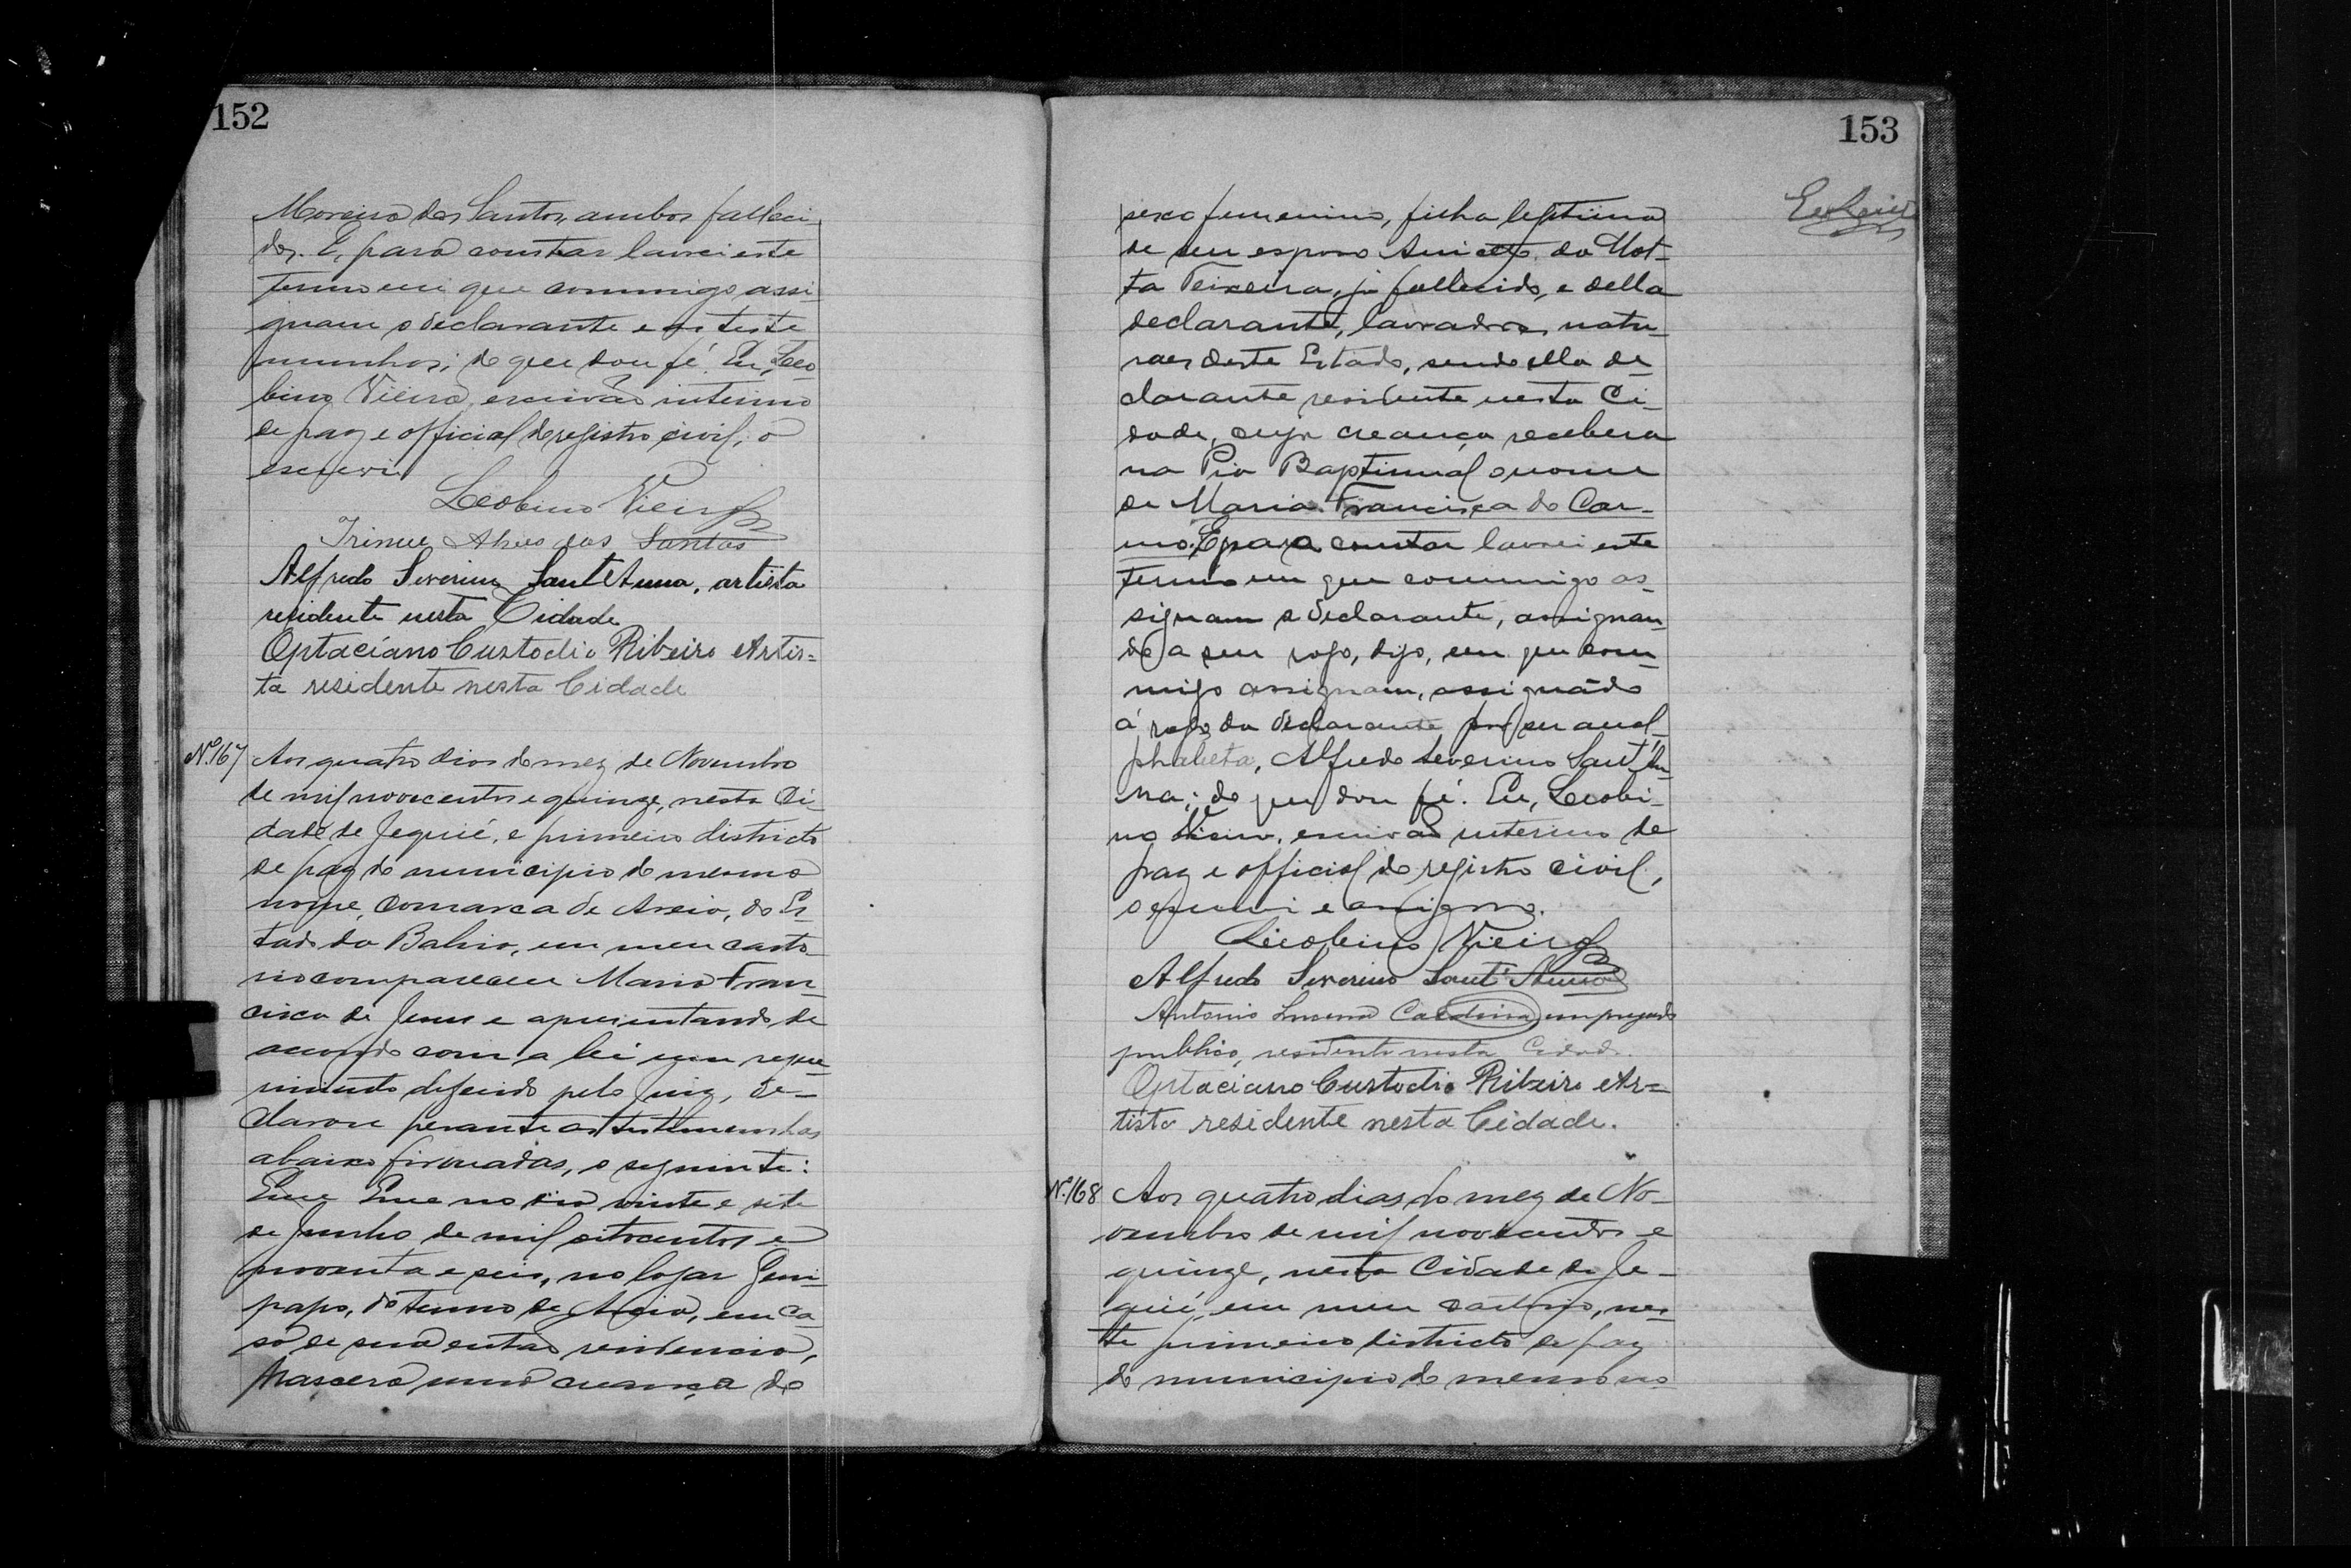 152
Moreira dos Santos, ambos falleci-
dos. E, para constar lavrei este
termo em que commigo assi-
gnam o declarante e as teste
munhas; do que dou fé. Eu, Leo-
bino Vieira, escrivão interino
de paz e official do registro civil, o
escrevi
Leobino Vieira
Irineu Alves dos Santos
Alfredo Severino Sant'Anna, artista
residente nesta Cidade
Optaciano Custodio Ribeiro Artis=
ta residente nesta Cidade
Nº 167 Aos quatro dias do mez de Novembro
de mil novecentos e quinze, nesta Ci-
dade de Jequié, e primeiro districto
de paz do municipio do mesmo
nome, comarca de Areia, do Es-
tado da Bahia, em meu carto-
rio compareceu Maria Fran-
cisca de Jesus e apresentando de
accordo com a lei um reque
rimento deferido pelo juiz, de-
clarou perante as testemunhas
abaixo firmadas, o seguinte:
Que Que no dia vinte e sete
de Junho de mil oitocentos e
noventa e seis, no logar Geni-
papo, do termo de Areia, em ca-
sa de sua então residencia,
nascera uma creança do
153
sexo femenino, filha legitima
de seu esposo Aniceto da Mot-
ta Teixeira, já fallecido, e della
declarante, lavradores, natu-
raes deste Estado, sendo ella de-
clarante residente nesta Ci-
dade, cuja creança recebera
na Pia Baptismal o nome
de Maria Francisca do Car-
mo. E para constar lavrei este
termo em que commigo as-
signam a declarante, assignan-
do a seu rogo, digo, em que com-
migo assignam, assignado
á rogo da declarante por ser anal-
phabeta, Alfredo Severino Sant'An-
na; do que dou fé. Eu, Leobi-
no Vieira, escrivão interino de
paz e official do registro civil,
o escrevi e assigno.
Leobino Vieira
Alfredo Severino Sant'Anna
Antonio empregado
publico, residente nesta Cidade.
Optaciano Custodio Ribeiro Ar=
tista residente nesta Cidade.
Nº 168 Aos quatro dias do mez de No-
vembro de mil novecentos e
quinze, nesta Cidade de Je-
quié, em meu cartorio, nes-
te primeiro districto de paz
do municipio do mesmo no-